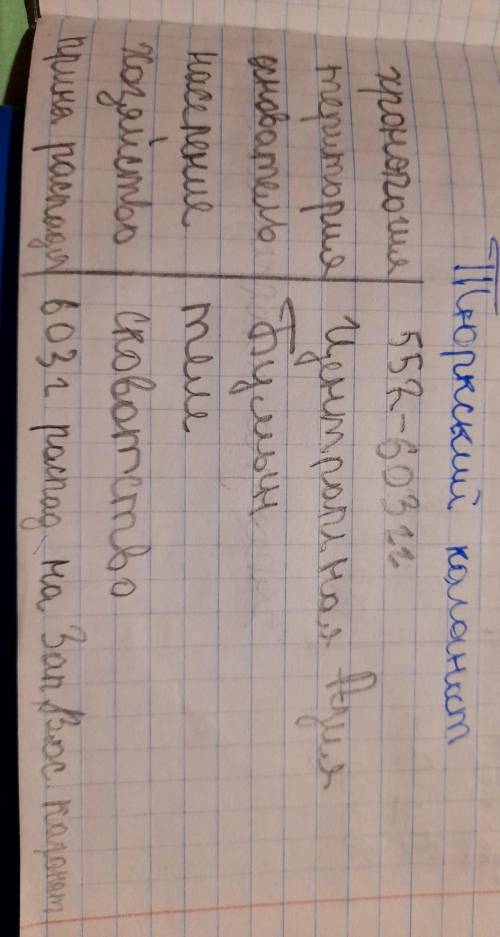 Тюркский каганат
хронология 552-603 гг
територия Центральная Азия
основатель Бумын
население теле
хозяйство скотоводство
прична распада 603 г распад на Зап, Вос. каганат